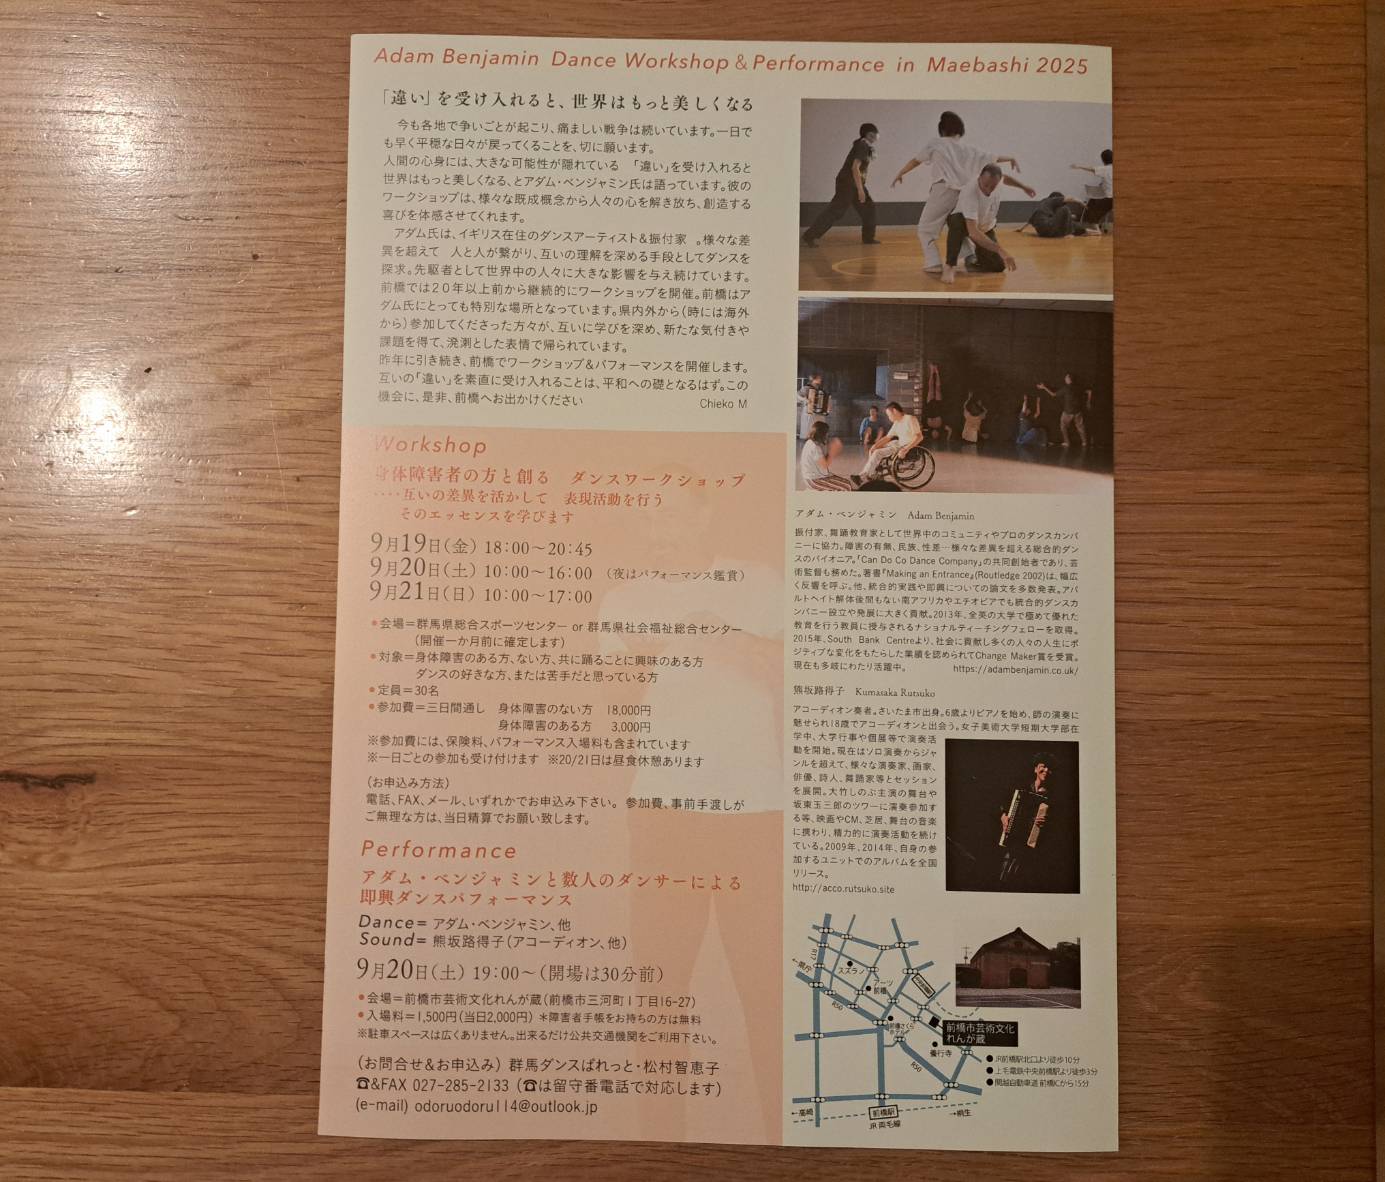 Adam Benjamin Dance Workshop & Performance in Maebashi 2025
「違い」を受け入れると、世界はもっと美しくなる
今も各地で争いごとが起こり、痛ましい戦争は続いています。一日で
も早く平穏な日々が戻ってくることを、切に願います。
人間の心身には、大きな可能性が隠れている 「違い」を受け入れると
世界はもっと美しくなる、とアダム・ベンジャミン氏は語っています。彼の
ワークショップは、様々な既成概念から人々の心を解き放ち、創造する
喜びを体感させてくれます。
アダム氏は、イギリス在住のダンスアーティスト&振付家 。様々な差
異を超えて 人と人が繋がり、互いの理解を深める手段としてダンスを
探求。先駆者として世界中の人々に大きな影響を与え続けています。
前橋では20年以上前から継続的にワークショップを開催。前橋はア
ダム氏にとっても特別な場所となっています。県内外から(時には海外
から)参加してくださった方々が、互いに学びを深め、新たな気付きや
課題を得て、溌溂とした表情で帰られています。
昨年に引き続き、前橋でワークショップ&パフォーマンスを開催します。
互いの「違い」を素直に受け入れることは、平和への礎となるはず。この
機会に、是非、前橋へお出かけください
Chieko M
Workshop
身体障害者の方と創る ダンスワークショップ
‥‥互いの差異を活かして 表現活動を行う
そのエッセンスを学びます
9月19日(金) 18:00~20:45
9月20日(土) 10:00~16:00 (夜はパフォーマンス鑑賞)
9月21日(日) 10:00~17:00
●会場=群馬県総合スポーツセンター or 群馬県社会福祉総合センター
(開催一か月前に確定します)
●対象=身体障害のある方、ない方、共に踊ることに興味のある方
ダンスの好きな方、または苦手だと思っている方
●定員=30名
●参加費=三日間通し 身体障害のない方 18,000円
身体障害のある方 3,000円
※参加費には、保険料、パフォーマンス入場料も含まれています
※一日ごとの参加も受け付けます ※20/21日は昼食休憩あります
(お申込み方法)
電話、FAX、メール、いずれかでお申込み下さい。参加費、事前手渡しが
ご無理な方は、当日精算でお願い致します。
Performance
アダム・ベンジャミンと数人のダンサーによる
即興ダンスパフォーマンス
Dance= アダム・ベンジャミン、他
Sound= 熊坂路得子(アコーディオン、他)
9月20日(土) 19:00~(開場は30分前)
●会場=前橋市芸術文化れんが蔵(前橋市三河町1丁目16-27)
●入場料=1,500円(当日2,000円) *障害者手帳をお持ちの方は無料
※駐車スペースは広くありません。出来るだけ公共交通機関をご利用下さい。
(お問合せ&お申込み) 群馬ダンスぱれっと・松村智恵子
☎&FAX 027-285-2133 (☎は留守番電話で対応します)
(e-mail) odoruodoru114@outlook.jp
アダム・ベンジャミン Adam Benjamin
振付家、舞踊教育家として世界中のコミュニティやプロのダンスカンパ
ニーに協力。障害の有無、民族、性差…様々な差異を超える総合的ダン
スのパイオニア。「Can Do Co Dance Company」の共同創始者であり、芸
術監督も務めた。著書『Making an Entrance』(Routledge 2002)は、幅広
く反響を呼ぶ。他、統合的実践や即興についての論文を多数発表。アパ
ルトヘイト解体後間もない南アフリカやエチオピアでも統合的ダンスカ
ンパニー設立や発展に大きく貢献。2013年、全英の大学で極めて優れた
教育を行う教員に授与されるナショナルティーチングフェローを取得。
2015年、South Bank Centreより、社会に貢献し多くの人々の人生にポ
ジティブな変化をもたらした業績を認められてChange Maker賞を受賞。
現在も多岐にわたり活躍中。 https://adambenjamin.co.uk/
熊坂路得子 Kumasaka Rutsuko
アコーディオン奏者。さいたま市出身。6歳よりピアノを始め、師の演奏に
魅せられ18歳でアコーディオンと出会う。女子美術大学短期大学部在
学中、大学行事や個展等で演奏活
動を開始。現在はソロ演奏からジャ
ンルを超えて、様々な演奏家、画家、
俳優、詩人、舞踊家等とセッション
を展開。大竹しのぶ主演の舞台や
坂東玉三郎のツワーに演奏参加す
る等、映画やCM、芝居、舞台の音楽
に携わり、精力的に演奏活動を続け
ている。2009年、2014年、自身の参
加するユニットでのアルバムを全国
リリース。
http://acco.rutsuko.site
R17
←県庁
スズラン
アーツ
前橋
R50
前橋市芸術文化
れんが蔵
優行寺
R50
●JR前橋駅北口より徒歩10分
●上毛電鉄中央前橋駅より徒歩3分
●関越自動車道 前橋ICから15分
←高崎
前橋駅
→桐生
JR 両毛線